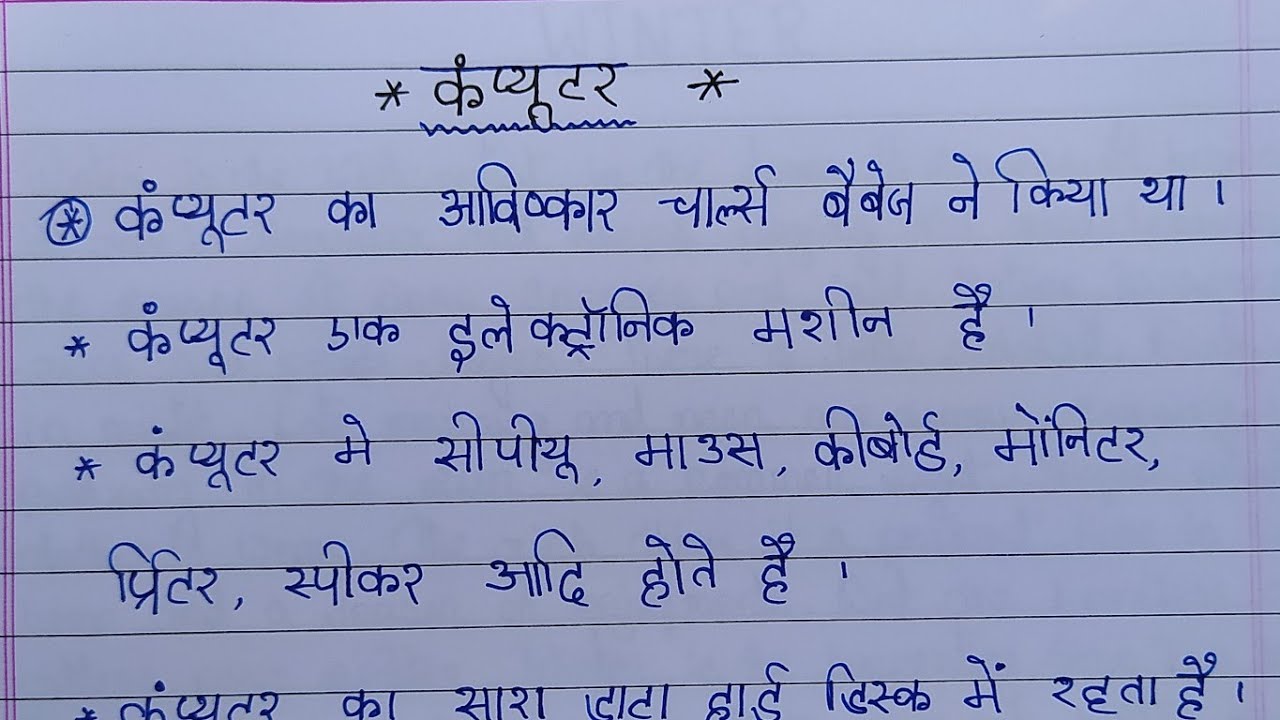 * कंप्यूटर *
* कंप्यूटर का आविष्कार चार्ल्स बैबेज ने किया था ।
* कंप्यूटर एक इलेक्ट्रॉनिक मशीन है ।
* कंप्यूटर मे सीपीयू, माउस, कीबोर्ड, मॉनिटर,
प्रिंटर, स्पीकर आदि होते है ।
* कंप्यूटर का सारा डाटा हार्ड डिस्क में रहता है ।